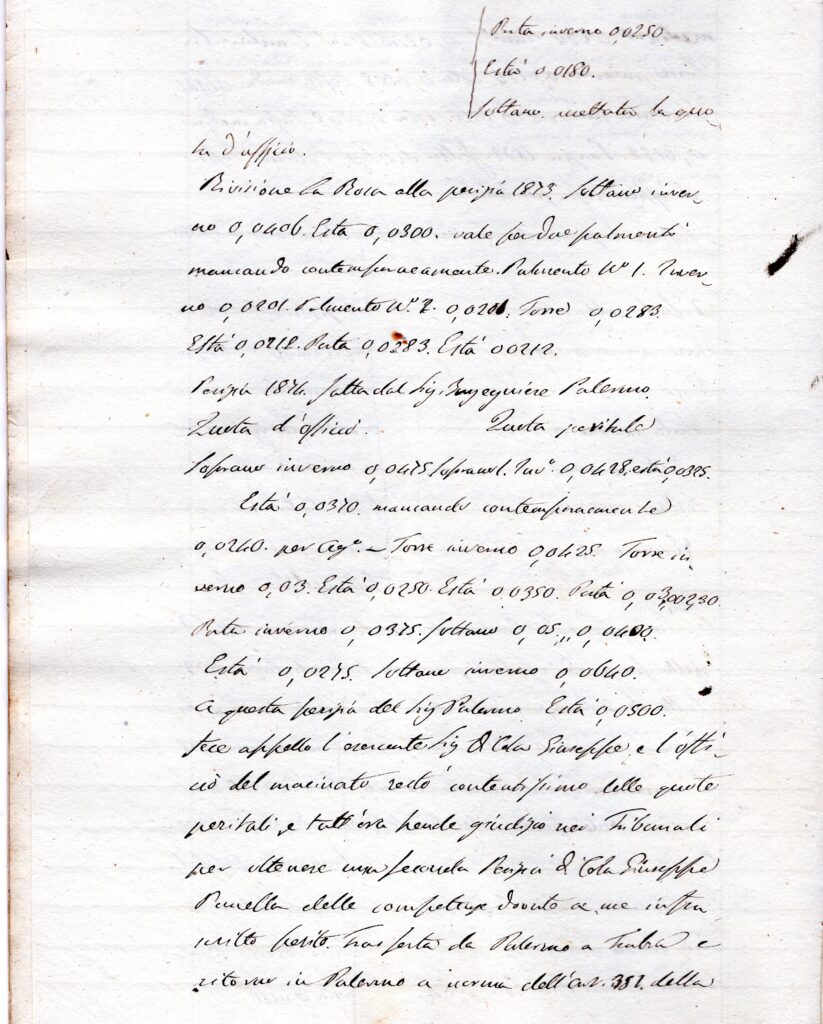 Puta inverno 0,0250.
Està 0,0180.
Sottano. accettato la quo-
ta d'officio.
Rivisione La Rosa alla perizia 1873. Sottano inver-
no 0,0406. Està 0,0300. vale per due palmenti
mancando contemporaneamente. Palmento N° 1. Inver-
no 0,0201. Palmento N° 2. 0,0201. Torre 0,0283
Està 0,0212. Puta 0,0283. Està 00212.
Perizia 1874. fatta dal Sig. Ingegniere Palermo.
Quota d'officio. Quota peritale
Soprano inverno 0,0475. Soprano 1. Inv° 0,0428, està 0,0325.
Està 0,0370. mancando contemporaneamente
0,0240. per – Torre inverno 0,0425. Torre in-
verno 0,03. Està 0,0250. Està 0,0350. Puta 0,03,00230.
Puta inverno 0,0375. Sottano 0,05 ,, 0,0400.
Està 0,0275. Sottano inverno 0,0640.
A questa perizia del Sig Palermo Està 0,0500.
fece appello l'esercente Sig Di Cola Giuseppe, e l'offi-
cio del macinato restò contentissimo delle quote
peritali, e tutt'ora pende giudizio nei Tribunali
per ottenere una seconda Perizia Di Cola Giuseppe
Panella delle competenze dovute a me infra-
scritto perito. Trasferta da Palermo a Trabia e
ritorno in Palermo a norma dell'art. 351. della